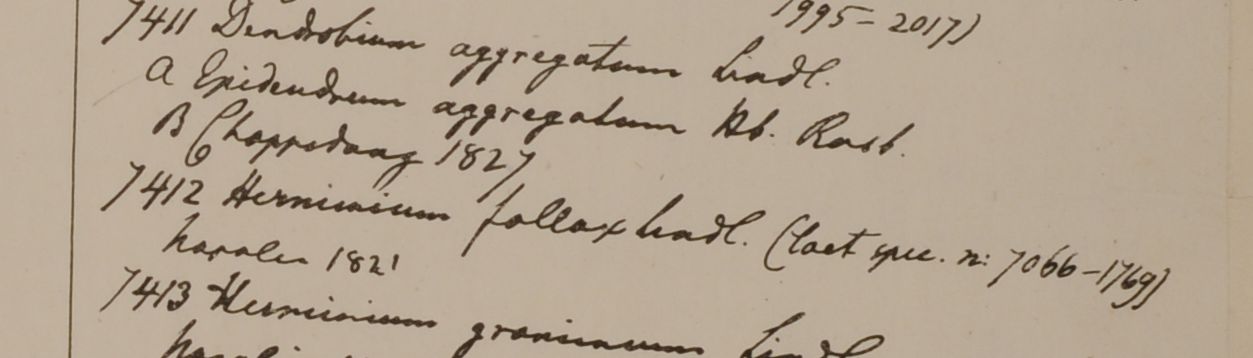 1995-2017)
7411 Dendrobium aggregatum Lindl.
A Epidendrum aggregatum Hb. Roxb.
B Choppedong 1827
7412 Herminium fallax Lindl. (laet spec. n: 7066-1769)
Napalia 1821
7413 Herminium gramineum Lindl